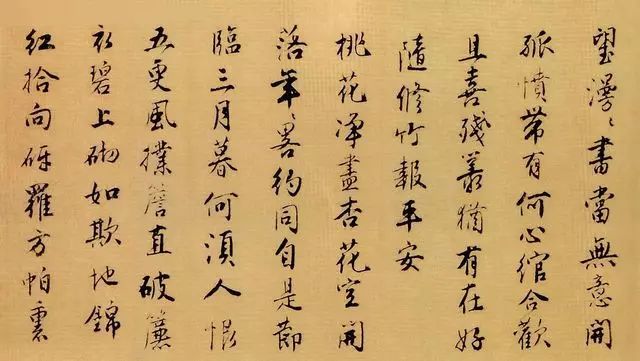 望漫〻書當無意開
孤憤帶有何心綰合歡
且喜殘叢猶有在好
隨修竹報平安
桃花淨盡杏花空開
落年〻畧約同自是節
臨三月暮何須人恨
五更風撲簷直破簾
衣碧上砌如欺地錦
紅拾向砑羅方帕裹